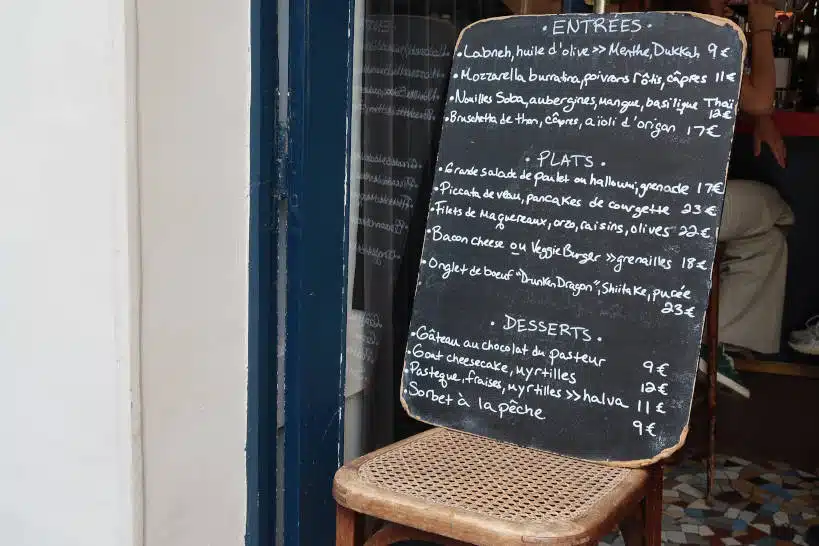 • ENTRÉES •
• Labneh, huile d'olive >> Menthe, Dukkah 9€
• Mozzarella burratina, poivrons rôtis, câpres 11€
• Nouilles Soba, aubergines, mangue, basilique Thaï
12€
• Bruschetta de thon, câpres, aïoli d'origan 17€
• PLATS •
• Grande salade de poulet ou halloumi, grenade 17€
• Piccata de veau, pancakes de courgette 23€
• Filets de maquereaux, orzo, raisins, olives 22€
• Bacon cheese ou Veggie Burger >> grenailles 18€
• Onglet de boeuf "Drunken Dragon", Shiitake, purée
23€
• DESSERTS •
• Gâteau au chocolat du pasteur 9€
• Goat cheesecake, myrtilles 12€
• Pasteque, fraises, myrtilles >> halva 11€
• Sorbet à la pêche 9€